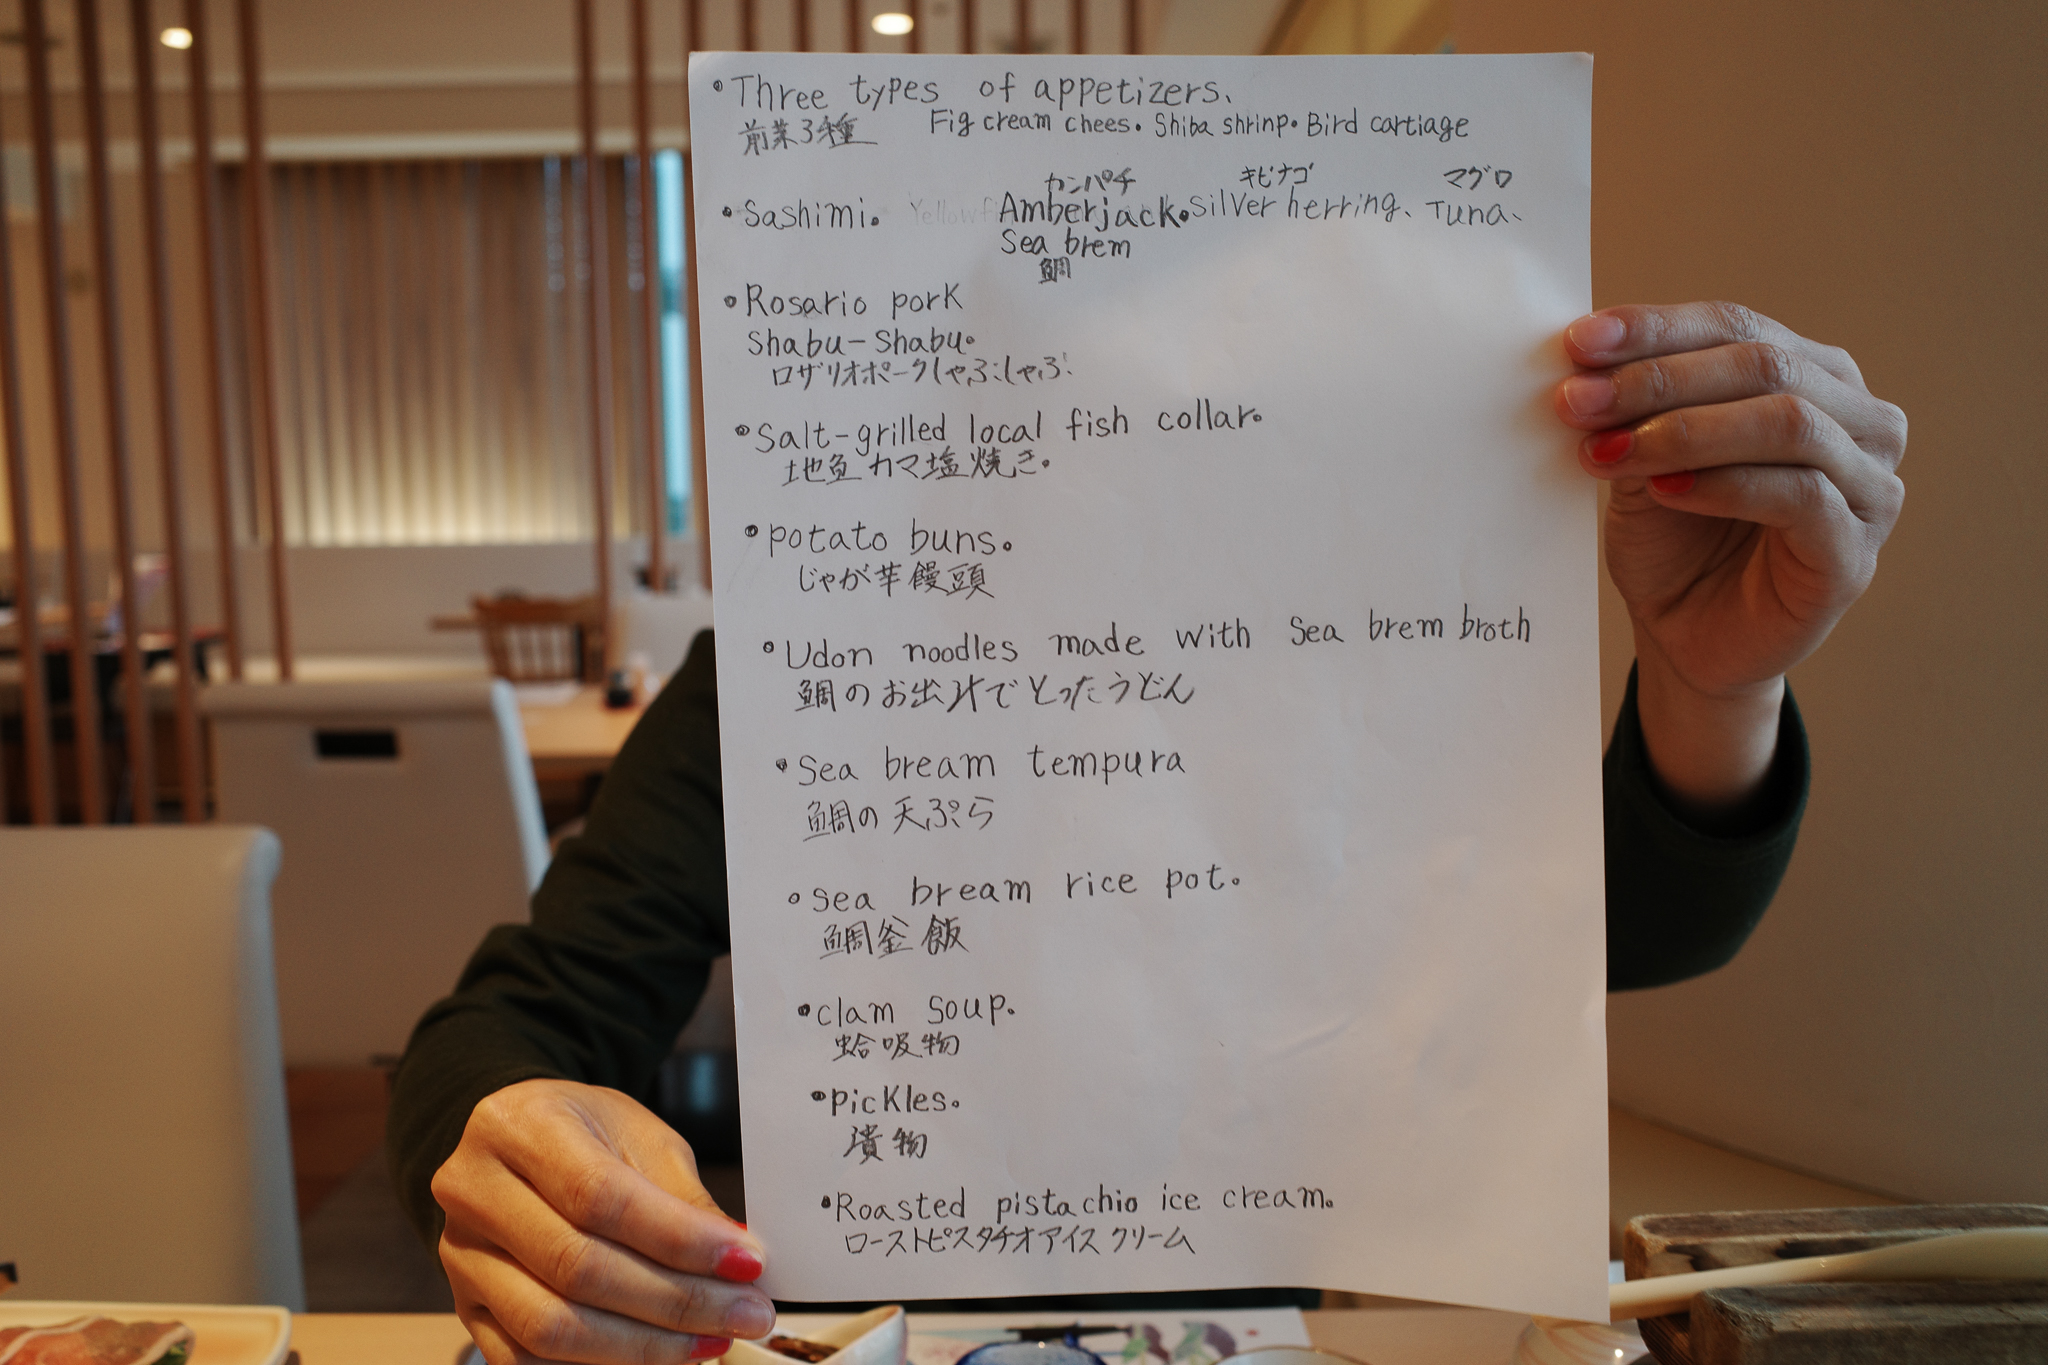 •Three types of appetizers、
前菜3種 Fig cream chees. Shiba shrinp. Bird cartiage
カンパチ キビナゴ マグロ
•Sashimi。 Yellowf Amberjack.Silver herring、Tuna、
Sea brem
鯛
•Rosario pork
Shabu-Shabu。
ロザリオポークしゃぶしゃぶ
•Salt-grilled local fish collar。
地魚カマ塩焼き。
•potato buns。
じゃが芋饅頭
•Udon noodles made with Sea brem broth
鯛のお出汁でとったうどん
•Sea bream tempura
鯛の天ぷら
•Sea bream rice pot.
鯛釜飯
•clam soup.
蛤吸物
•pickles。
漬物
•Roasted pistachio ice cream。
ローストピスタチオアイスクリーム